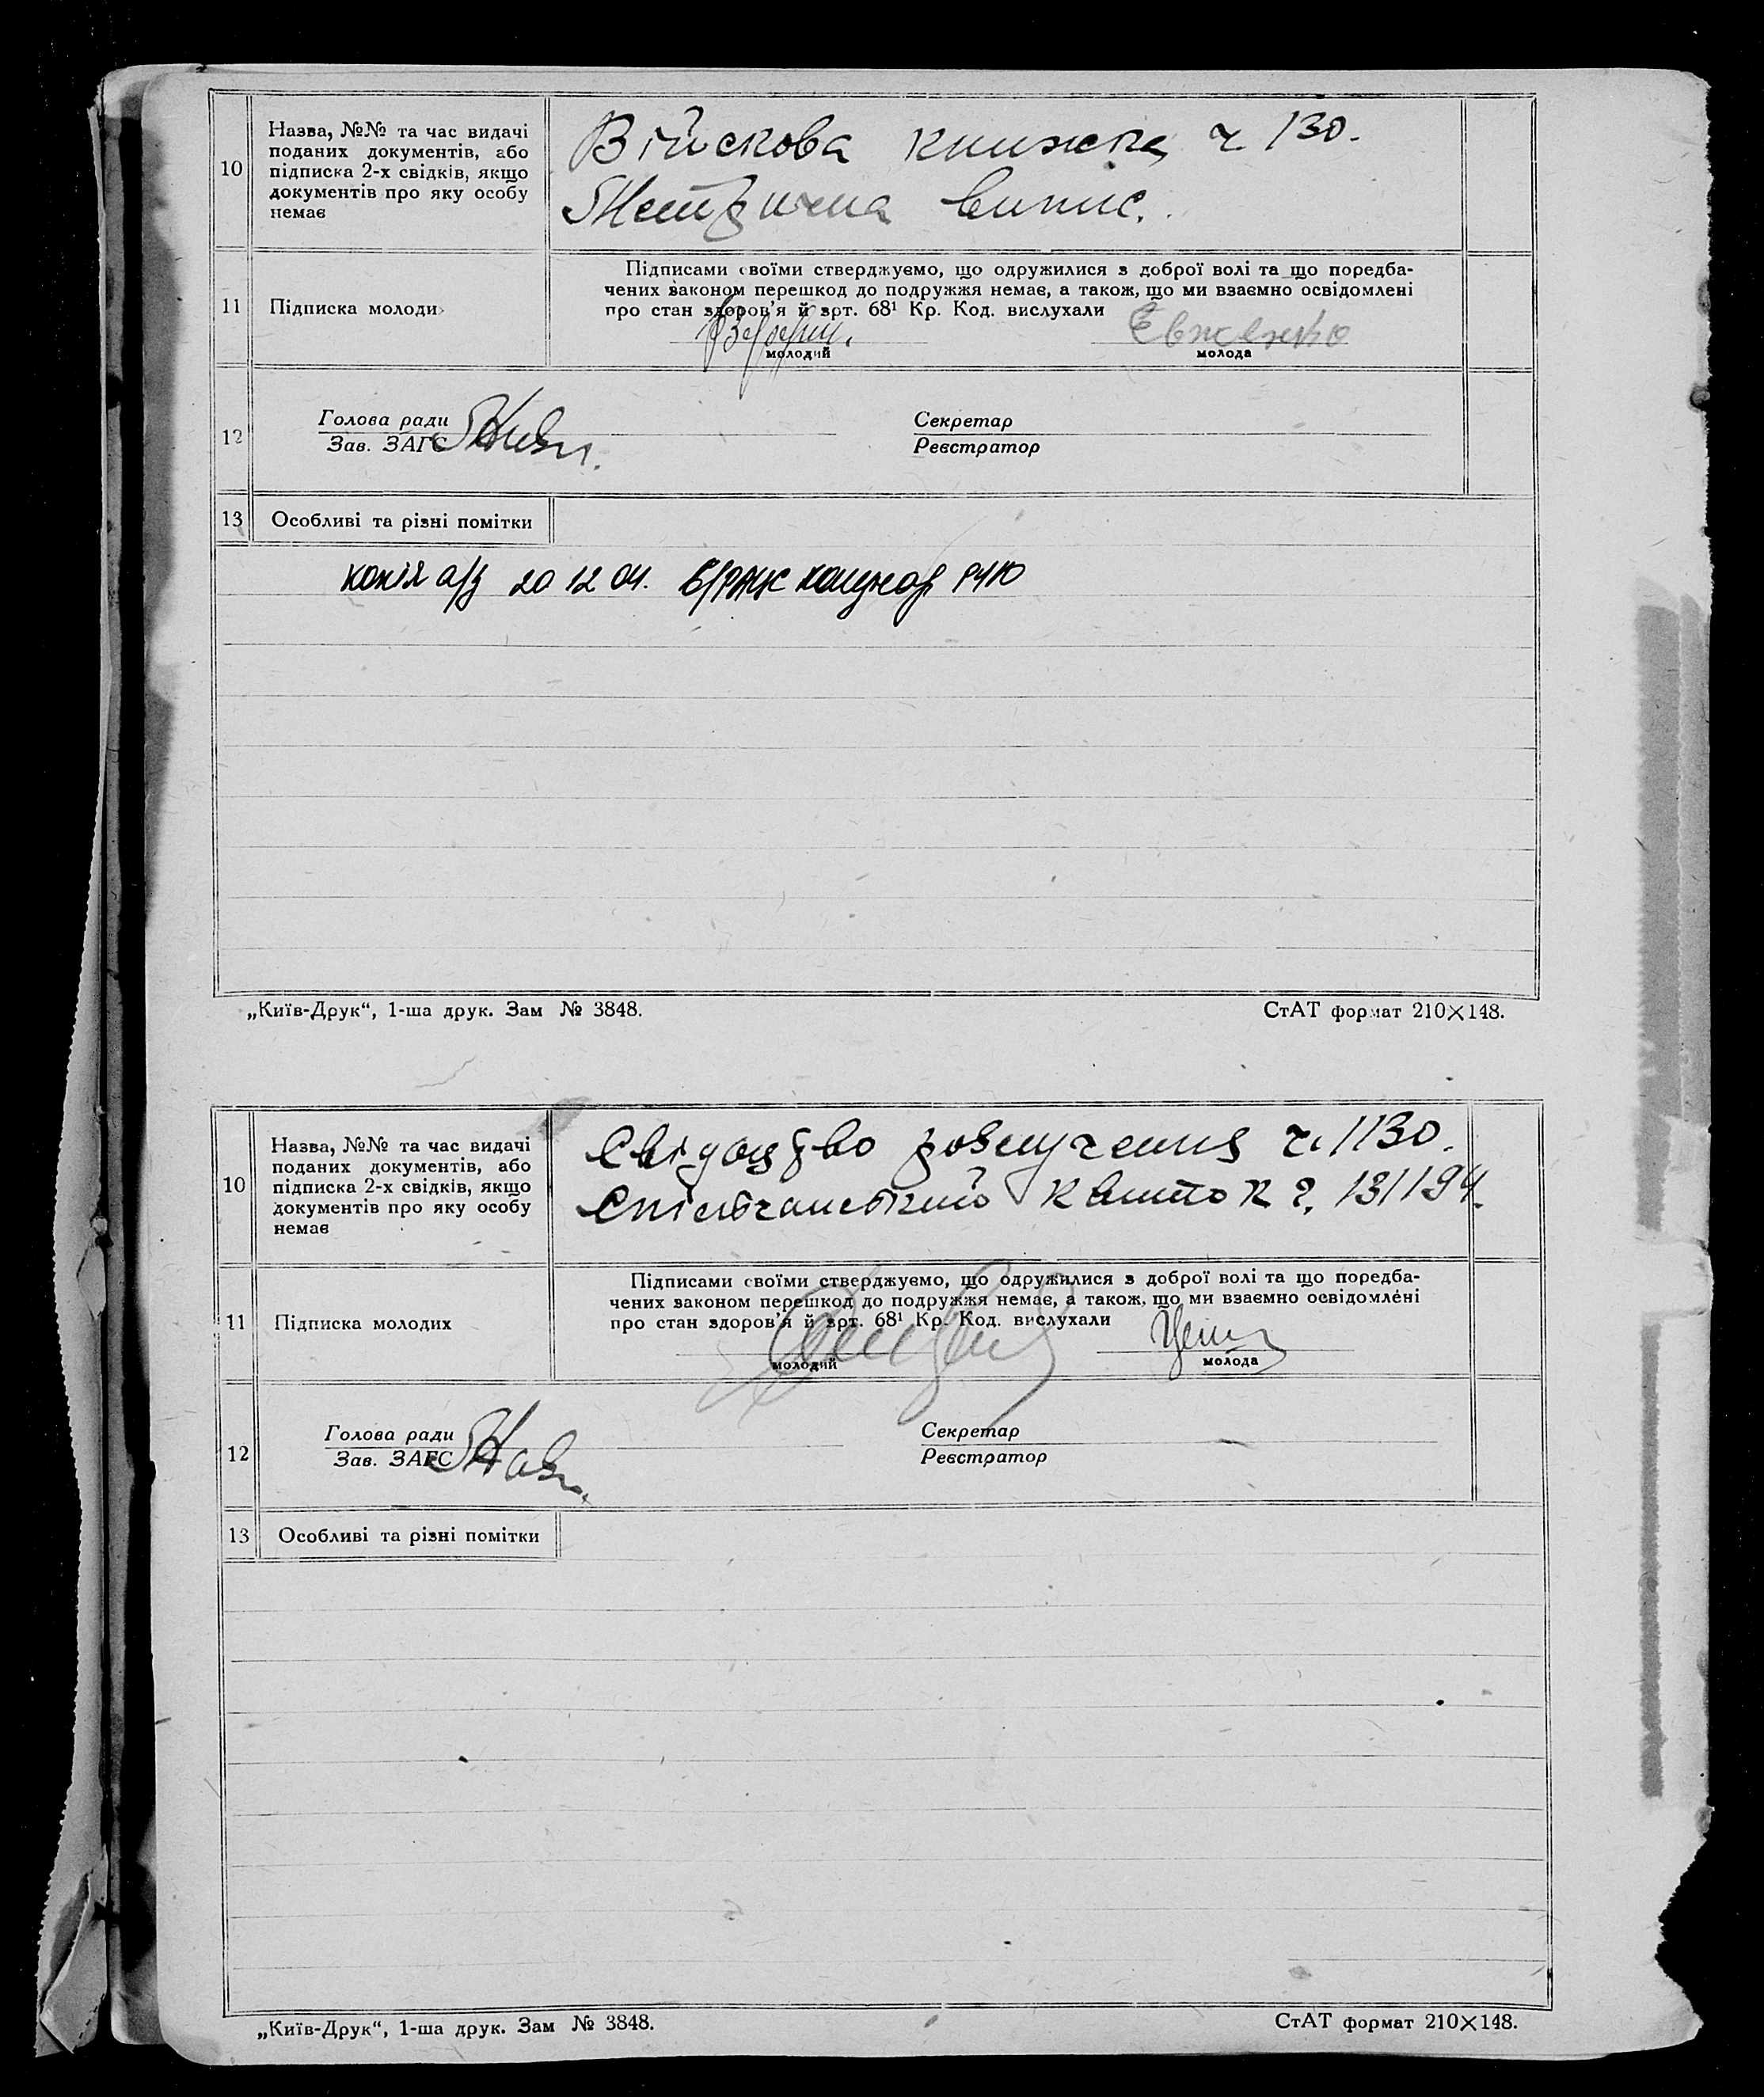 10
Назва, №№ та час видачі
поданих документів, або
підписка 2-х свідків, якщо
документів про яку особу
немає
Війскова книжка ч 130.
Метрична випис.
11
Підписка молоди
Підписами своїми стверджуємо, що одружилися з доброї волі та що поредба-
чених законом перешкод до подружжя немає, а також, що ми взаємно освідомлені
про стан здоров'я й арт. 68¹ Кр. Код. вислухали
молодий
молода
12
Голова ради
Зав. ЗАГС
Секретар
Реєстратор
13
Особливі та різні помітки
копія а/з 20 12 04.
„Київ-Друк“, 1-ша друк. Зам № 3848.
СтАТ формат 210×148.
10
Назва, №№ та час видачі
поданих документів, або
підписка 2-х свідків, якщо
документів про яку особу
немає
Свідоцтво розлучення ч. 1130.
Спілчанський квиток ч. 131194.
11
Підписка молодих
Підписами своїми стверджуємо, що одружилися з доброї волі та що поредба-
чених законом перешкод до подружжя немає, а також, що ми взаємно освідомлені
про стан здоров'я й арт. 68¹ Кр. Код. вислухали
молодий
молода
12
Голова ради
Зав. ЗАГС
Секретар
Реєстратор
13
Особливі та різні помітки
„Київ-Друк“, 1-ша друк. Зам № 3848.
СтАТ формат 210×148.